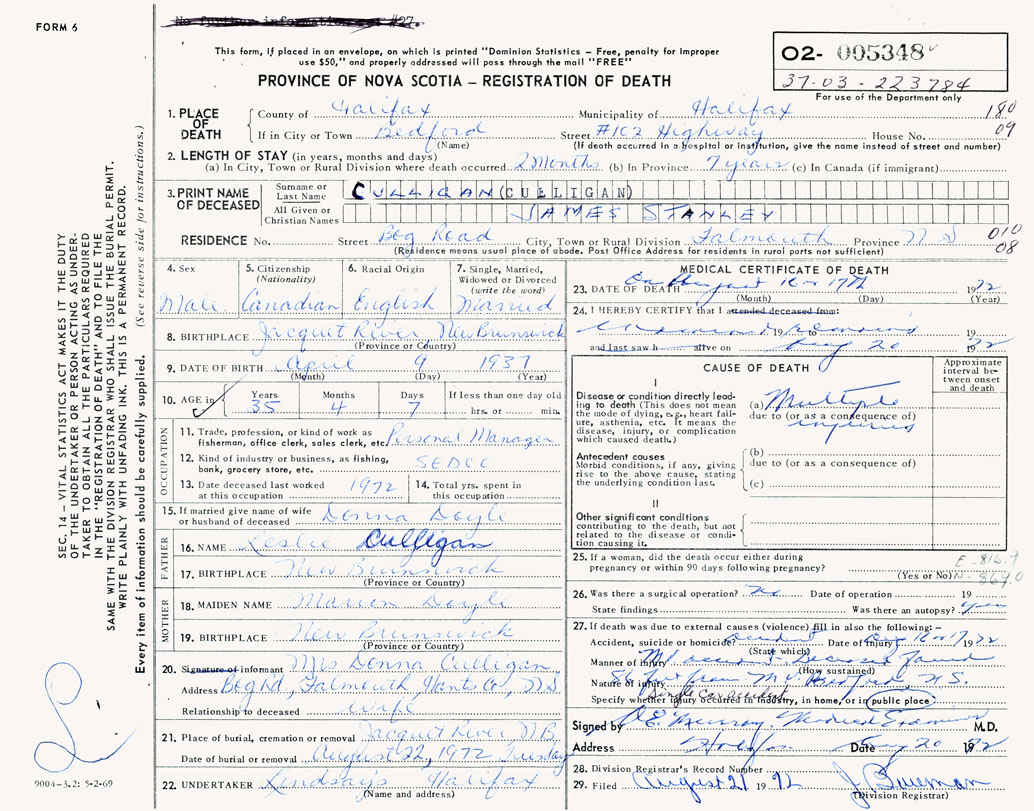 No further information #27.
FORM 6
This form, if placed in an envelope, on which is printed "Dominion Statistics — Free, penalty for improper
use $50," and properly addressed will pass through the mail "FREE"
PROVINCE OF NOVA SCOTIA — REGISTRATION OF DEATH
02- 005348
37-03-223784
For use of the Department only
180
09
1. PLACE OF DEATH
County of Halifax Municipality of Halifax
If in City or Town Bedford Street #102 Highway House No.
(Name) (If death occurred in a hospital or institution, give the name instead of street and number)
2. LENGTH OF STAY (in years, months and days)
(a) In City, Town or Rural Division where death occurred 2 Months (b) In Province 7 years (c) In Canada (if immigrant)
3. PRINT NAME OF DECEASED
Surname or Last Name CULLIGAN (CULLIGAN)
All Given or Christian Names JAMES STANLEY
RESIDENCE No. Street Bog Road City, Town or Rural Division Falmouth Province N S
010
08
(Residence means usual place of abode. Post Office Address for residents in rural parts not sufficient)
4. Sex Male
5. Citizenship (Nationality) Canadian
6. Racial Origin English
7. Single, Married, Widowed or Divorced (write the word) Married
8. BIRTHPLACE Jacquet River, New Brunswick
(Province or Country)
9. DATE OF BIRTH April 9 1937
(Month) (Day) (Year)
10. AGE in Years 35 Months 4 Days 7 If less than one day old hrs. or min.
OCCUPATION
11. Trade, profession, or kind of work as fisherman, office clerk, sales clerk, etc. Personal Manager
12. Kind of industry or business, as fishing, bank, grocery store, etc. SEDCO
13. Date deceased last worked at this occupation 1972
14. Total yrs. spent in this occupation
15. If married give name of wife or husband of deceased Donna Doyle
FATHER
16. NAME Leslie Culligan
17. BIRTHPLACE New Brunswick
(Province or Country)
MOTHER
18. MAIDEN NAME Marion Doyle
19. BIRTHPLACE New Brunswick
(Province or Country)
20. Signature of informant Mrs Donna Culligan
Address Bog Rd, Falmouth Hants Co, N.S.
Relationship to deceased Wife
21. Place of burial, cremation or removal Jacquet River N.B.
Date of burial or removal August 22, 1972 Tuesday
22. UNDERTAKER Lindsay's Halifax
(Name and address)
MEDICAL CERTIFICATE OF DEATH
23. DATE OF DEATH On August 16 or 17th 1972
(Month) (Day) (Year)
24. I HEREBY CERTIFY that I attended deceased from:
19 to 19
and last saw h alive on Aug 20 1972
CAUSE OF DEATH
Approximate interval between onset and death
I
Disease or condition directly leading to death (This does not mean the mode of dying, e.g., heart failure, asthenia, etc. It means the disease, injury, or complication which caused death.)
(a) Multiple
due to (or as a consequence of)
injuries
Antecedent causes
Morbid conditions, if any, giving rise to the above cause, stating the underlying condition last.
(b)
due to (or as a consequence of)
(c)
II
Other significant conditions
contributing to the death, but not related to the disease or condition causing it.
25. If a woman, did the death occur either during
pregnancy or within 90 days following pregnancy?
(Yes or No)
E-816.9
N-869.0
26. Was there a surgical operation? No Date of operation 19
State findings Was there an autopsy? yes
27. If death was due to external causes (violence) fill in also the following:—
Accident, suicide or homicide? accident Date of injury Aug 16 or 17 1972
(State which)
Manner of injury MV accident - Deceased found
(How sustained)
Nature of injury from M.V. Bedford, N.S.
Single car accident
Specify whether injury occurred in industry, in home, or in public place
Signed by Murray, Medical Examiner M.D.
Address Halifax Date Aug 20 1972
28. Division Registrar's Record Number
29. Filed August 21 1972
(Division Registrar)
SEC. 14 — VITAL STATISTICS ACT MAKES IT THE DUTY
OF THE UNDERTAKER OR PERSON ACTING AS UNDER-
TAKER TO OBTAIN ALL THE PARTICULARS REQUIRED
IN THE "REGISTRATION OF DEATH" AND TO FILE THE
SAME WITH THE DIVISION REGISTRAR WHO SHALL ISSUE THE BURIAL PERMIT.
WRITE PLAINLY WITH UNFADING INK. THIS IS A PERMANENT RECORD.
Every item of information should be carefully supplied. (See reverse side for instructions.)
9004-3.2: 5-2-69